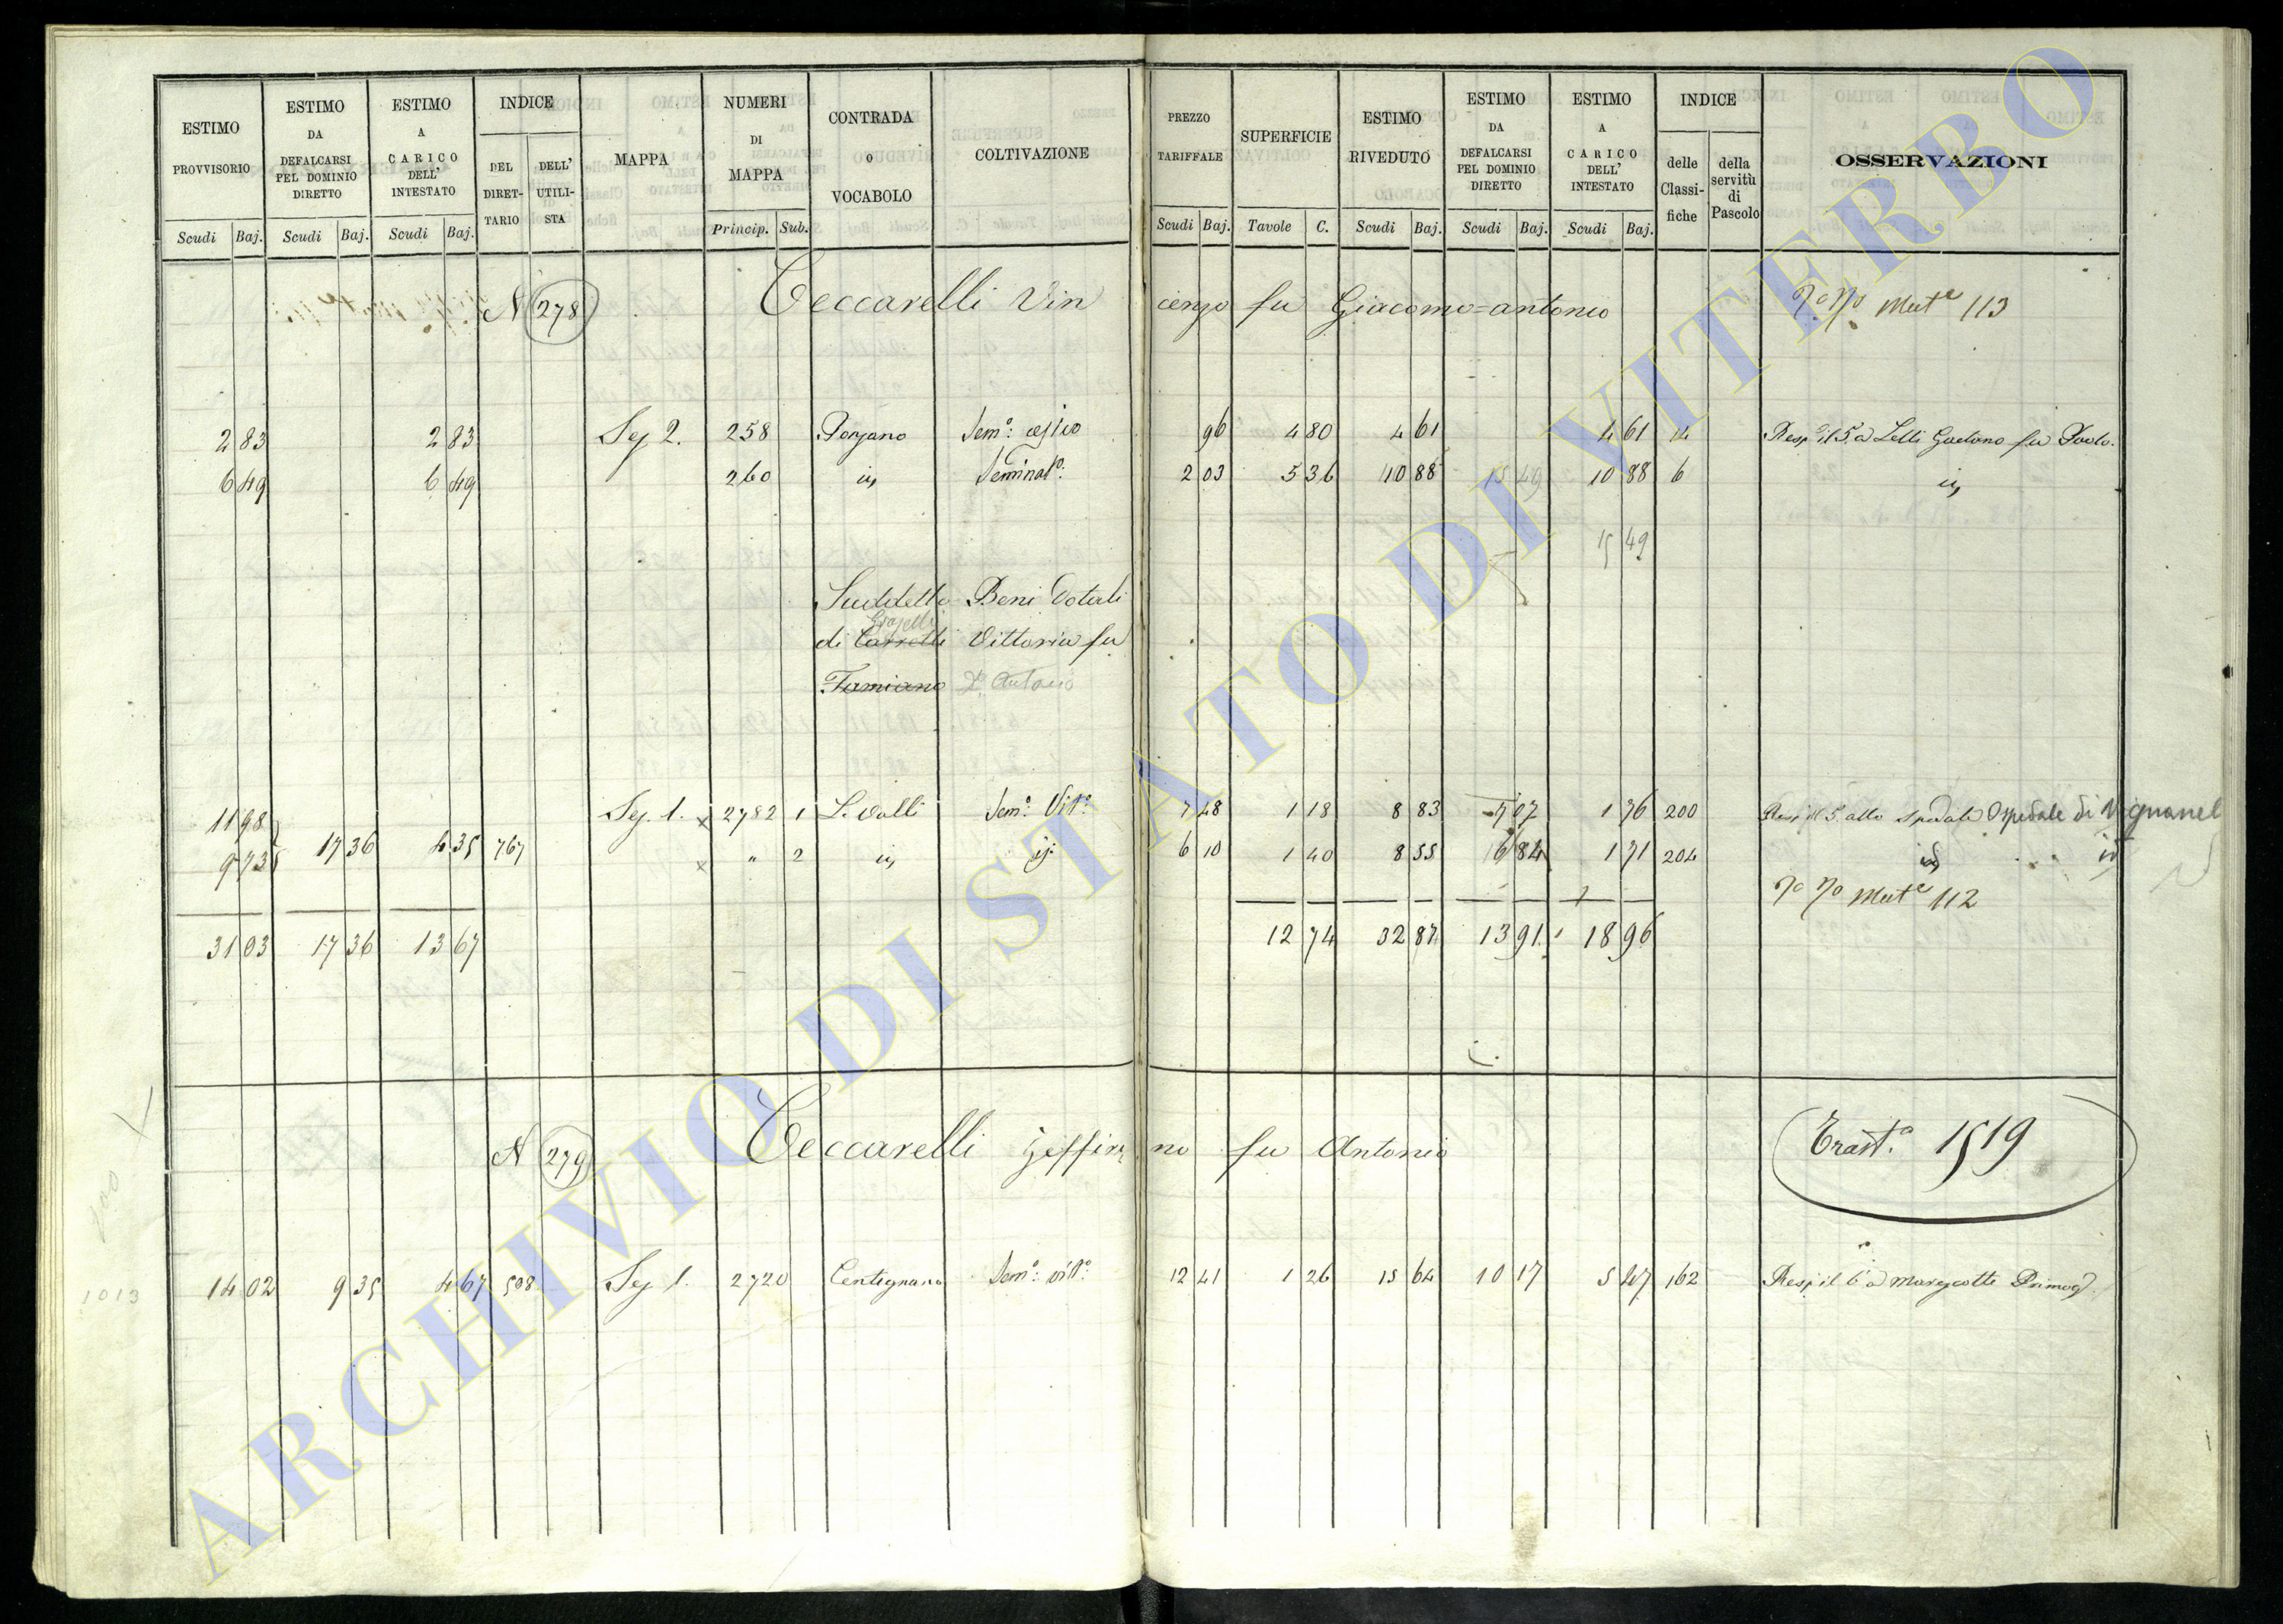 ESTIMO PROVVISORIO | ESTIMO DA DEFALCARSI PEL DOMINIO DIRETTO | ESTIMO A CARICO DELL' INTESTATO | INDICE DEL DIRETTARIO | DELL' UTILISTA | MAPPA | NUMERI DI MAPPA | CONTRADA O VOCABOLO | COLTIVAZIONE | PREZZO TARIFFALE | SUPERFICIE | ESTIMO RIVEDUTO | ESTIMO DA DEFALCARSI PEL DOMINIO DIRETTO | ESTIMO A CARICO DELL' INTESTATO | INDICE delle Classifiche | della servitù di Pascolo | OSSERVAZIONI
Scudi Baj. Scudi Baj. Scudi Baj. Princip. Sub. Scudi Baj. Tavole C. Scudi Baj. Scudi Baj. Scudi Baj.
N 278 Ceccarelli Vincenzo fu Giacomo=antonio Mut.e 113
2 83 2 83 Sez 2. 258 Sem.o 96 4 80 4 61 4 61 14 Resp il 5 a Lelli Gaetano fu Paolo.
6 49 6 49 260 id Seminat.o 2 03 5 36 10 88 15 49 10 88 6 id
15 49
Suddetto Beni Dotali
di Carrelli Vittoria fu
Famiano Antonio
11 98 Sez. 1. x 2782 1 Le Valli Sem.o Vit.o 7 48 1 18 8 83 7 07 1 76 200 5 allo Spedale Ospedale di Vignanel
9 73 17 36 4 35 767 x " 2 id id 6 10 1 40 8 55 6 84 1 71 204 id id
Mut.e 112
31 03 17 36 13 67 12 74 32 87 13 91 18 96
N 279 Ceccarelli Zeffirino fu Antonio Trast.o 1519
200
1013
14 02 9 35 4 67 508 Sez 1. 2720 Centignano Sem.o vit.o 12 41 1 26 15 64 10 17 5 47 162 Resp il 6 a Marescotti Primog.
ARCHIVIO DI STATO DI VITERBO